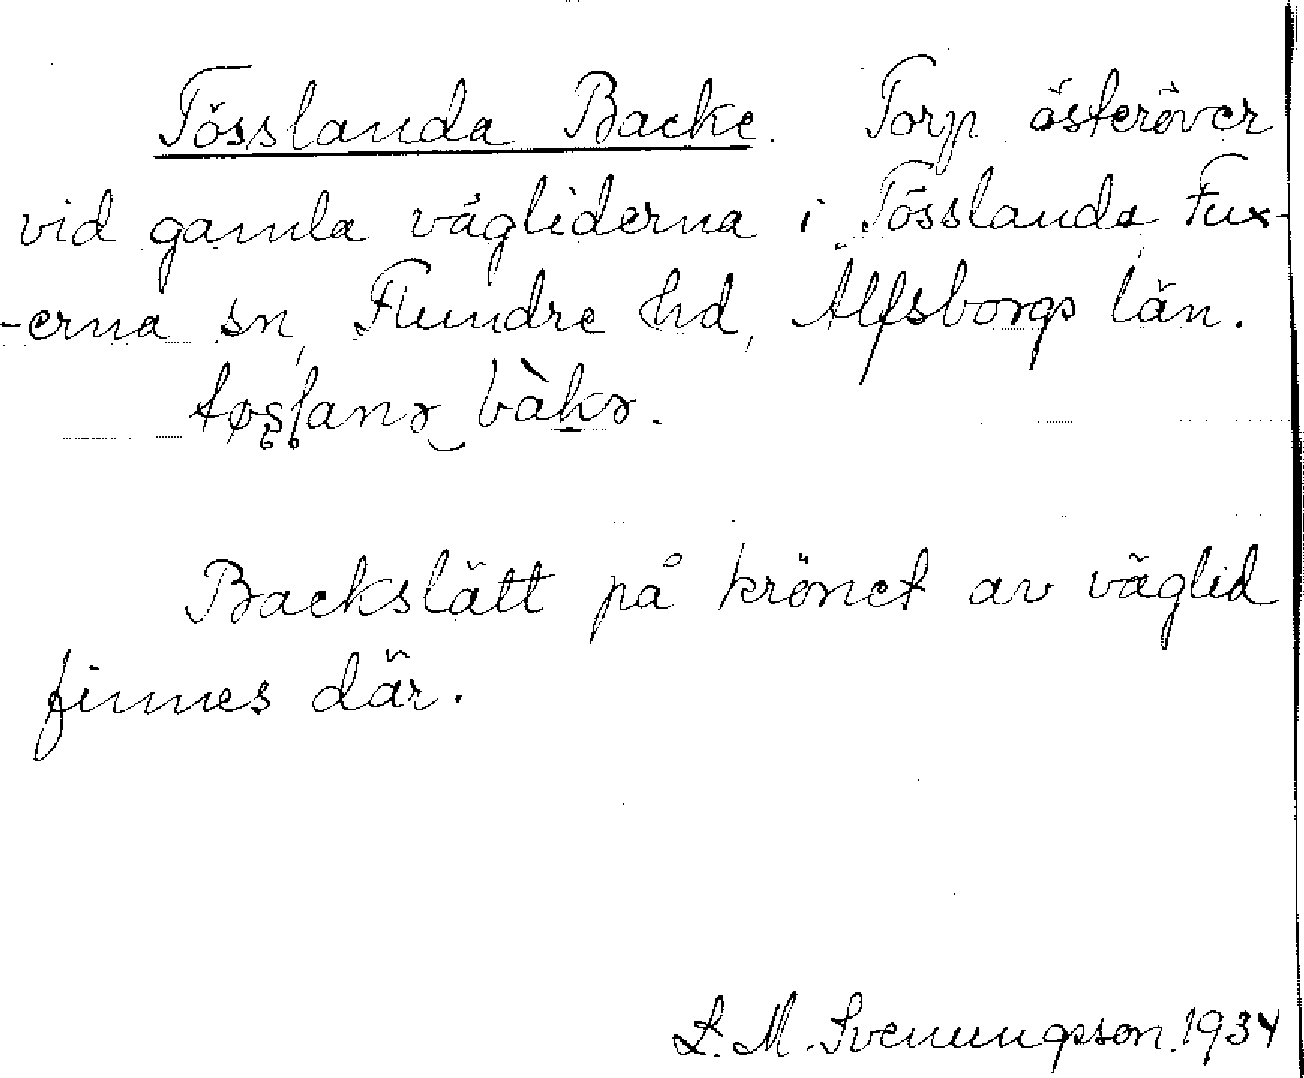 Tösslanda Backe. Torp österöver
vid gamla vägliderna i Tösslanda Fux-
-erna sn, Flundre hd, Älfsborgs län.
bàkɘ.
Backslätt på krönet av väglid
finnes där.
L. M. Svenungsson. 1934